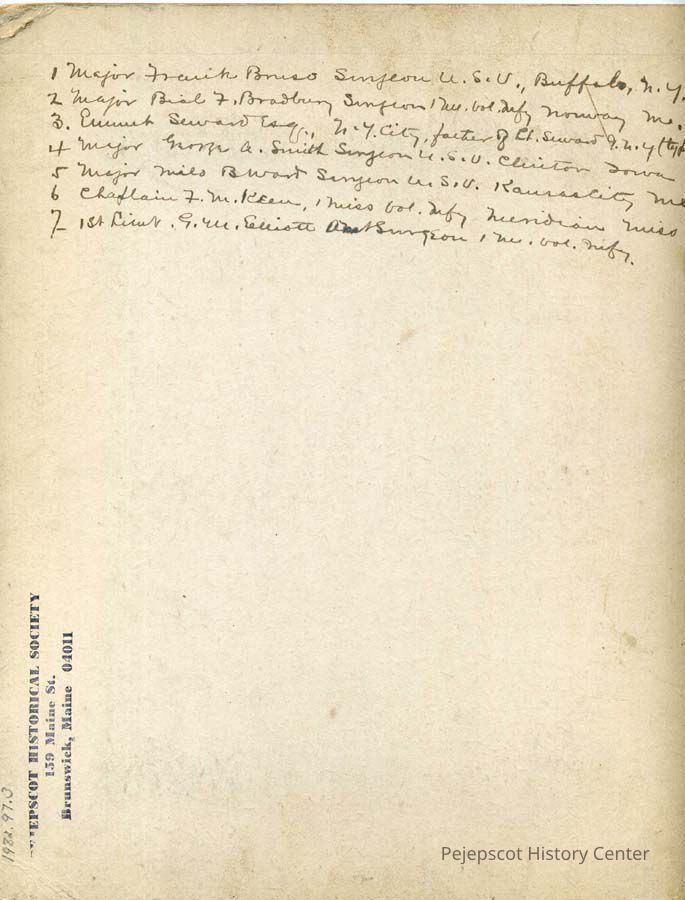 1 Major Frank Bruso Surgeon U.S.V., Buffalo, N.Y.
2 Major Bial F. Bradbury Surgeon 1 Me. Vol. Infy Norway Me.
3. Emmet Seward Esq., N.Y. City, father of Lt. Seward 9. N.Y
4 Major George A. Smith Surgeon U.S.V. Clinton Iowa
5 Major Milo B Ward Surgeon U.S.V. Kansas City
6 Chaplain F. M. Keen, 1 Miss Vol. Infy Meridian Miss
7 1st Lieut. G. M. Elliott Asst Surgeon 1 Me. Vol. Infy.
PEJEPSCOT HISTORICAL SOCIETY
159 Maine St.
Brunswick, Maine 04011
1982.97.
Pejepscot History Center